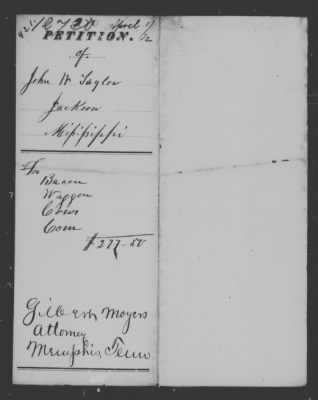 PETITION.
of
John W Taylor
Jackson
Mississippi
For
Bacon
Waggon
Cows
Corn
$277-50
Gilbert Moyers
Attorney
Memphis Tenn